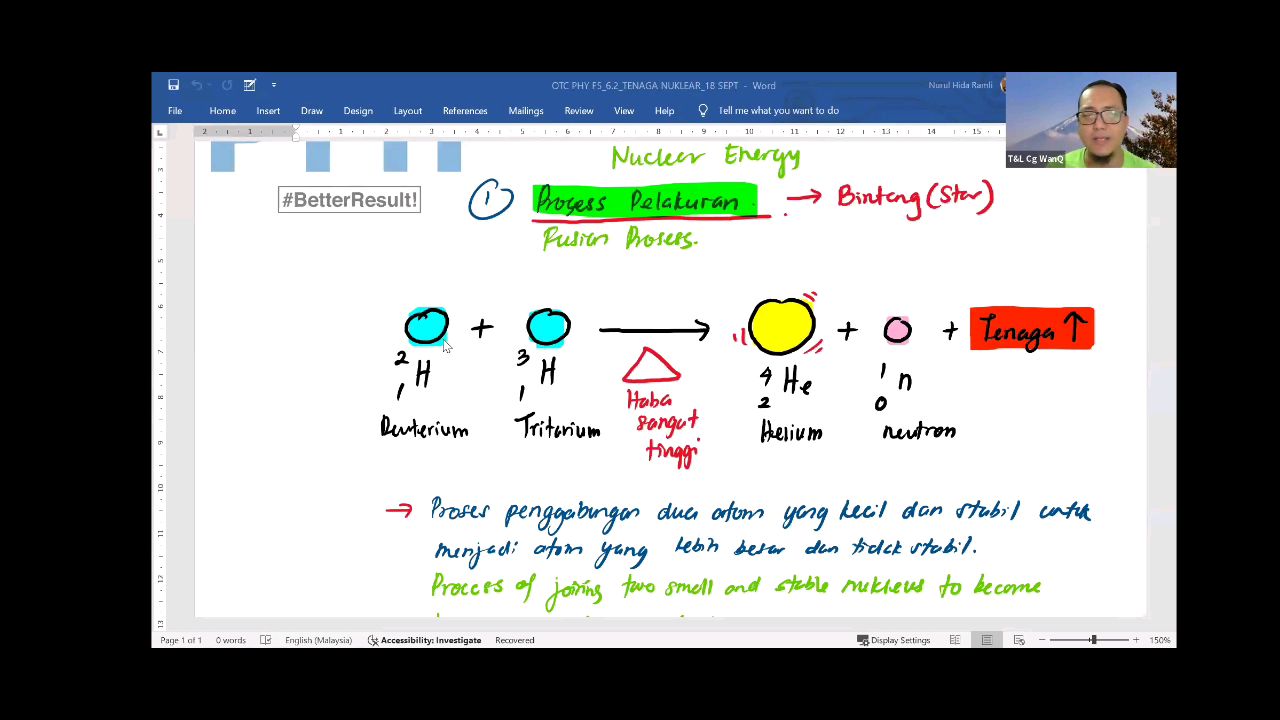 OTC PHY F5_6.2_TENAGA NUKLEAR_18 SEPT - Word
Nurul Hida Ramli
File Home Insert Draw Design Layout References Mailings Review View Help Tell me what you want to do
2 1 1 2 3 4 5 6 7 8 9 10 11 12 13 14 15
T&L Cg WanQ
Nuclear Energy
#BetterResult!
1 Process Pelakuran → Bintang (Star)
Fusian Prosess.
+ → + + Tenaga ↑
2 1 H 3 1 H 4 2 He 1 0 n
Haba
sangat
tinggi
Deuterium Tritarium Helium neutron
→ Proses penggabungan dua atom yang kecil dan stabil untuk
menjadi atom yang lebih besar dan tidak stabil.
Process of joining two small and stable nukleus to become
Page 1 of 1 0 words English (Malaysia) Accessibility: Investigate Recovered Display Settings 150%